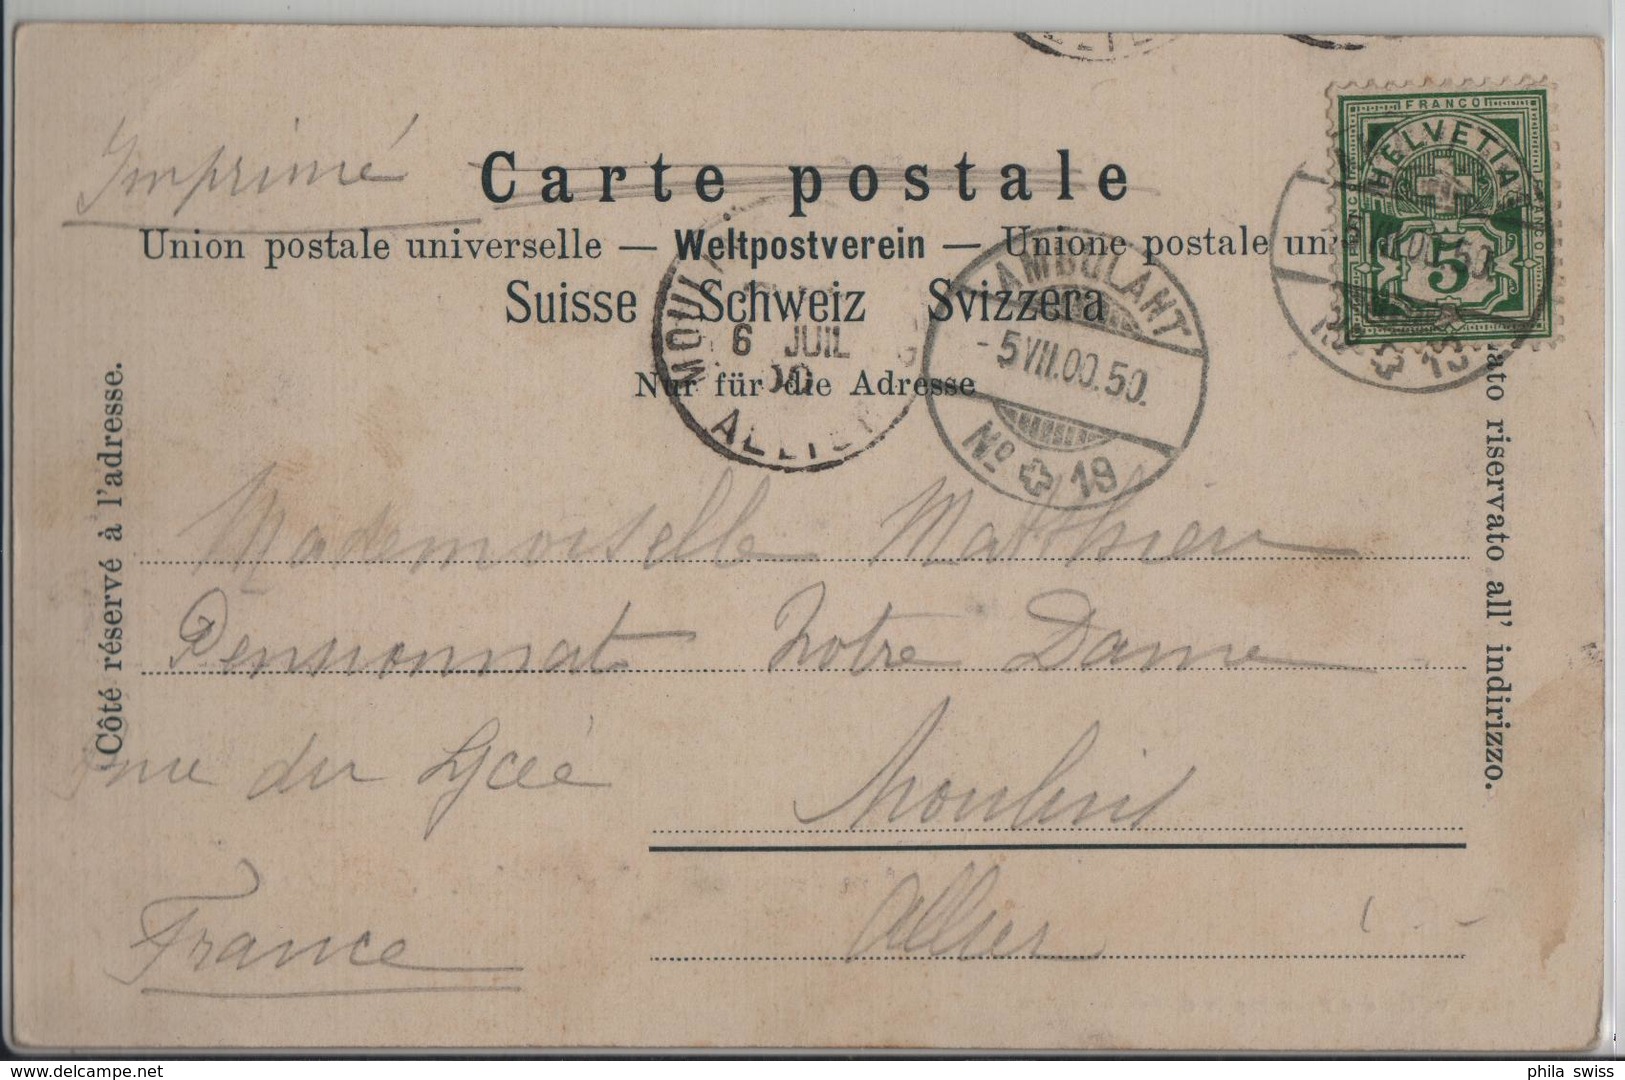 FRANCO
HELVETIA
5
Imprimé
Carte postale
Union postale universelle — Weltpostverein — Unione postale un
Suisse Schweiz Svizzera
Nur für die Adresse
MOULIN
6 JUIL
00
ALLIER
AMBULANT
-5 VII.00.50.
No 19
VII.00.50
No 19
Côté réservé à l'adresse.
lato riservato all' indirizzo.
Mademoiselle Matthieu
Pensionnat Notre Dame
rue du Lycée Moulins
Allier
France
phila swiss